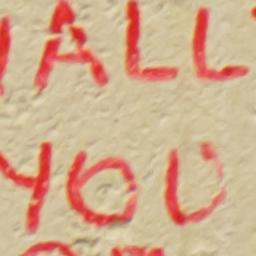 ALL
YOU